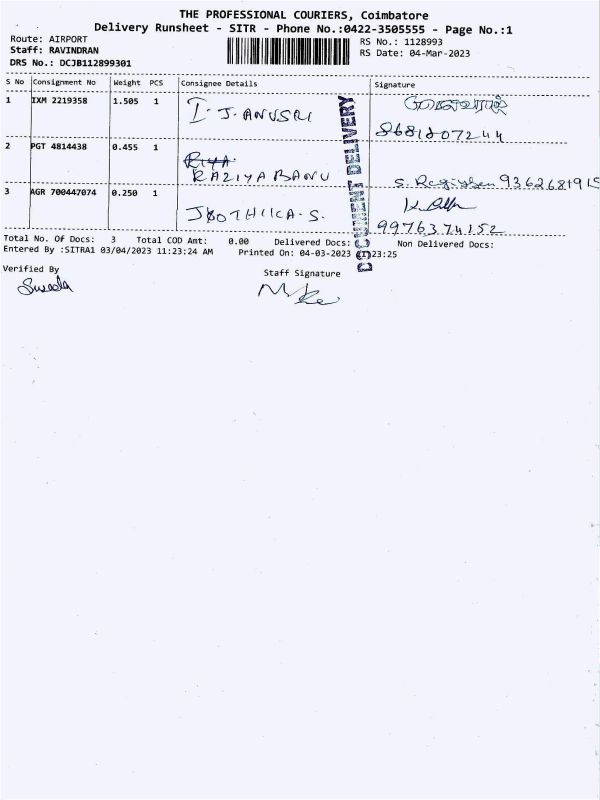 THE PROFESSIONAL COURIERS, Coimbatore
Delivery Runsheet - SITR - Phone No.:0422-3505555 - Page No.:1
Route: AIRPORT
RS No.: 1128993
Staff: RAVINDRAN
RS Date: 04-Mar-2023
DRS No.: DCJB112899301
S No Consignment No Weight PCS Consignee Details Signature
1 IXM 2219358 1.505 1 I. J. ANUSRI
8681807244
2 PGT 4814438 0.455 1 RIYA
RAZIYA BANU 9362681915
3 AGR 700447074 0.250 1 JOTHIKA.S.
9976374152
DOCUMENT DELIVERY
Total No. Of Docs: 3 Total COD Amt: 0.00 Delivered Docs: Non Delivered Docs:
Entered By :SITRA1 03/04/2023 11:23:24 AM Printed On: 04-03-2023 11:23:25
Verified By
Staff Signature